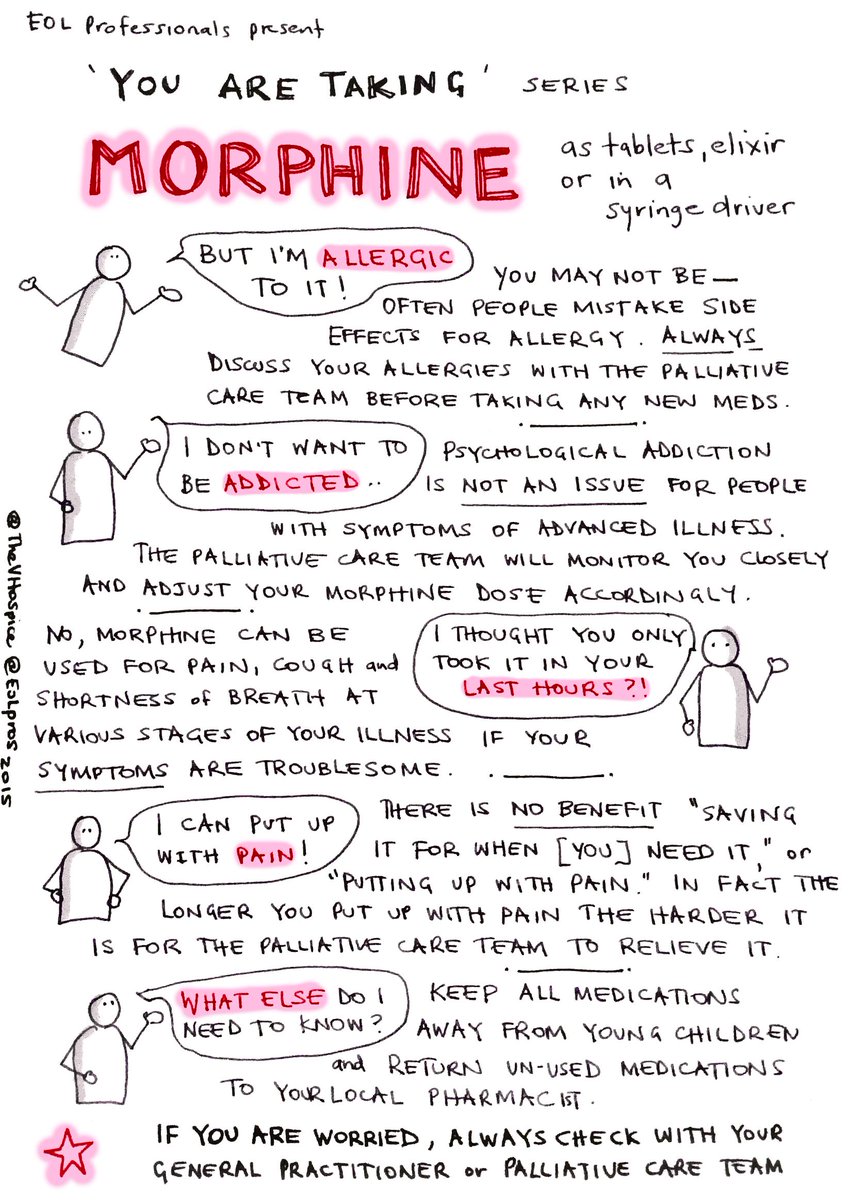 EOL Professionals present
'YOU ARE TAKING' SERIES
MORPHINE
as tablets, elixir
or in a
syringe driver
BUT I'M ALLERGIC
TO IT!
YOU MAY NOT BE—
OFTEN PEOPLE MISTAKE SIDE
EFFECTS FOR ALLERGY. ALWAYS
DISCUSS YOUR ALLERGIES WITH THE PALLIATIVE
CARE TEAM BEFORE TAKING ANY NEW MEDS.
I DON'T WANT TO
BE ADDICTED..
PSYCHOLOGICAL ADDICTION
IS NOT AN ISSUE FOR PEOPLE
WITH SYMPTOMS OF ADVANCED ILLNESS.
THE PALLIATIVE CARE TEAM WILL MONITOR YOU CLOSELY
AND ADJUST YOUR MORPHINE DOSE ACCORDINGLY.
I THOUGHT YOU ONLY
TOOK IT IN YOUR
LAST HOURS?!
NO, MORPHINE CAN BE
USED FOR PAIN, COUGH and
SHORTNESS of BREATH AT
VARIOUS STAGES OF YOUR ILLNESS IF YOUR
SYMPTOMS ARE TROUBLESOME.
I CAN PUT UP
WITH PAIN!
THERE IS NO BENEFIT "SAVING
IT FOR WHEN [YOU] NEED IT," or
"PUTTING UP WITH PAIN." IN FACT THE
LONGER YOU PUT UP WITH PAIN THE HARDER IT
IS FOR THE PALLIATIVE CARE TEAM TO RELIEVE IT.
WHAT ELSE DO I
NEED TO KNOW?
KEEP ALL MEDICATIONS
AWAY FROM YOUNG CHILDREN
and RETURN UN-USED MEDICATIONS
TO YOUR LOCAL PHARMACIST.
IF YOU ARE WORRIED, ALWAYS CHECK WITH YOUR
GENERAL PRACTITIONER or PALLIATIVE CARE TEAM
@TheVHospice @Eolpros 2015